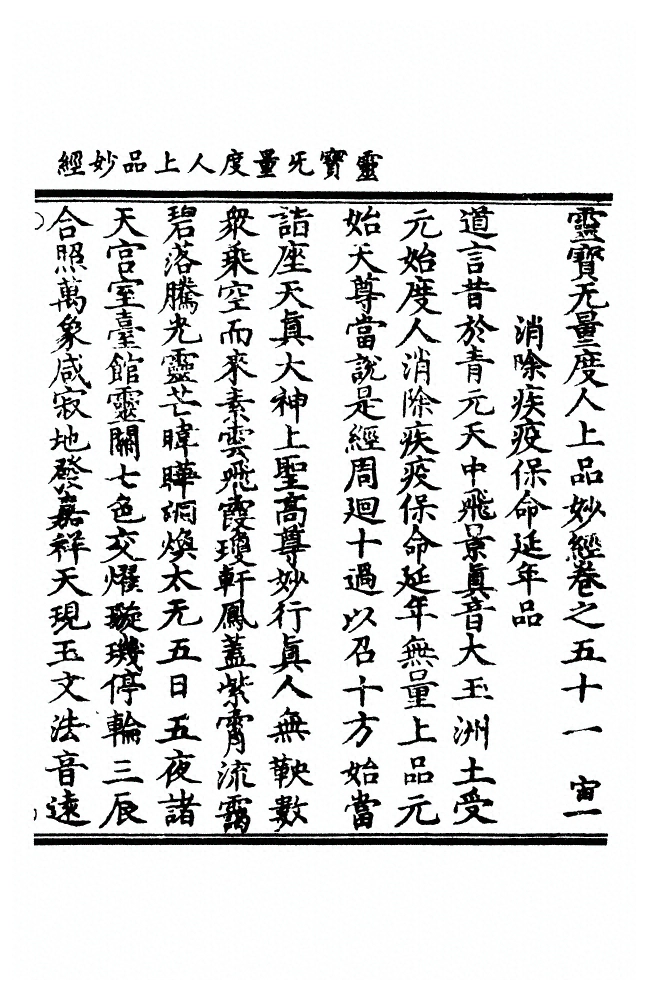 靈寶无量度人上品妙經
靈寶无量度人上品妙經卷之五十一　宙一
消除疾疫保命延年品
道言昔於青元天中飛景眞音大玉洲土受
元始度人消除疾疫保命延年無量上品元
始天尊當說是經周迴十過以召十方始當
詣座天眞大神上聖高尊妙行眞人無鞅數
衆乘空而來素雲飛霞瓊軒鳳蓋紫霄流靄
碧落騰光靈芒暐曄洞煥太无五日五夜諸
天宮室臺館靈關七色交耀璇璣停輪三辰
合照萬象咸寂地發嘉祥天現玉文法音遠